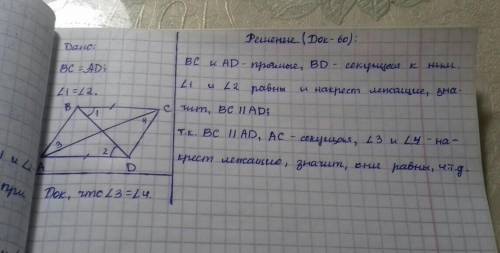 Дано:
BC = AD;
∠1 = ∠2.
B
1
C
4
3
2
A
D
Док, что ∠3 = ∠4.
Решение (Док-во):
BC и AD - прямые, BD - секущая к ним.
∠1 и ∠2 равны и накрест лежащие, зна-
чит, BC || AD;
т.к. BC || AD, AC - секущая, ∠3 и ∠4 - на-
крест лежащие, значит, они равны, ч.т.д.
и ∠
при